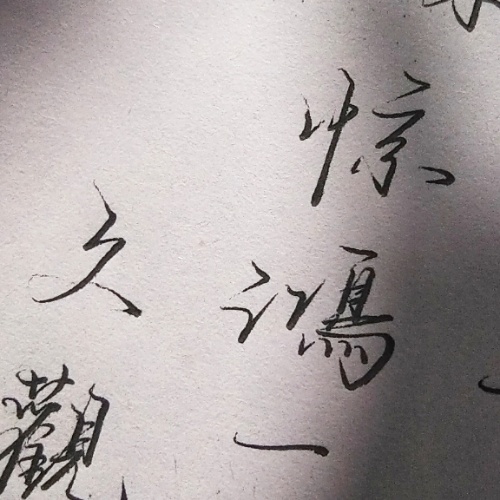 惊鸿一
久觀